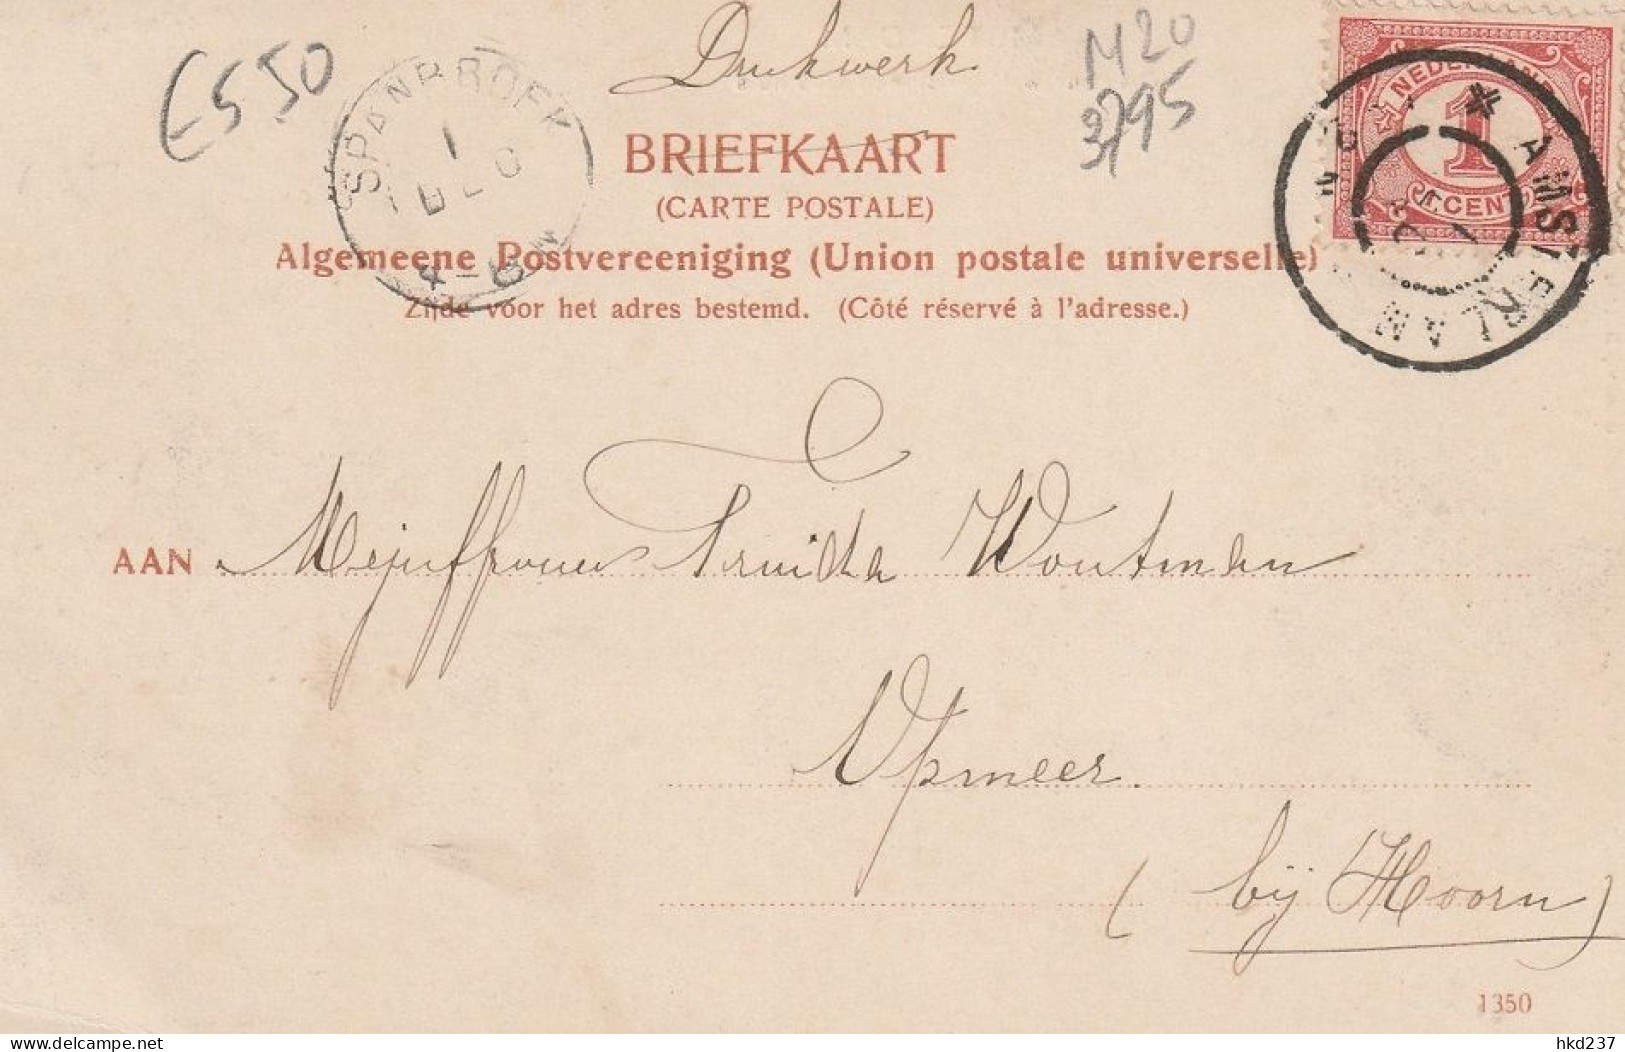 Drukwerk
M20
3795
E550
SPANBROEK
1
DEC
4-5
BRIEFKAART
(CARTE POSTALE)
Algemeene Postvereeniging (Union postale universelle)
Zijde voor het adres bestemd. (Côté réservé à l'adresse.)
NEDERLAND
1
CENT
AMSTERDAM
AAN Mejuffrouw Truida Woutman
Opmeer
(bij Hoorn)
1350
hkd237